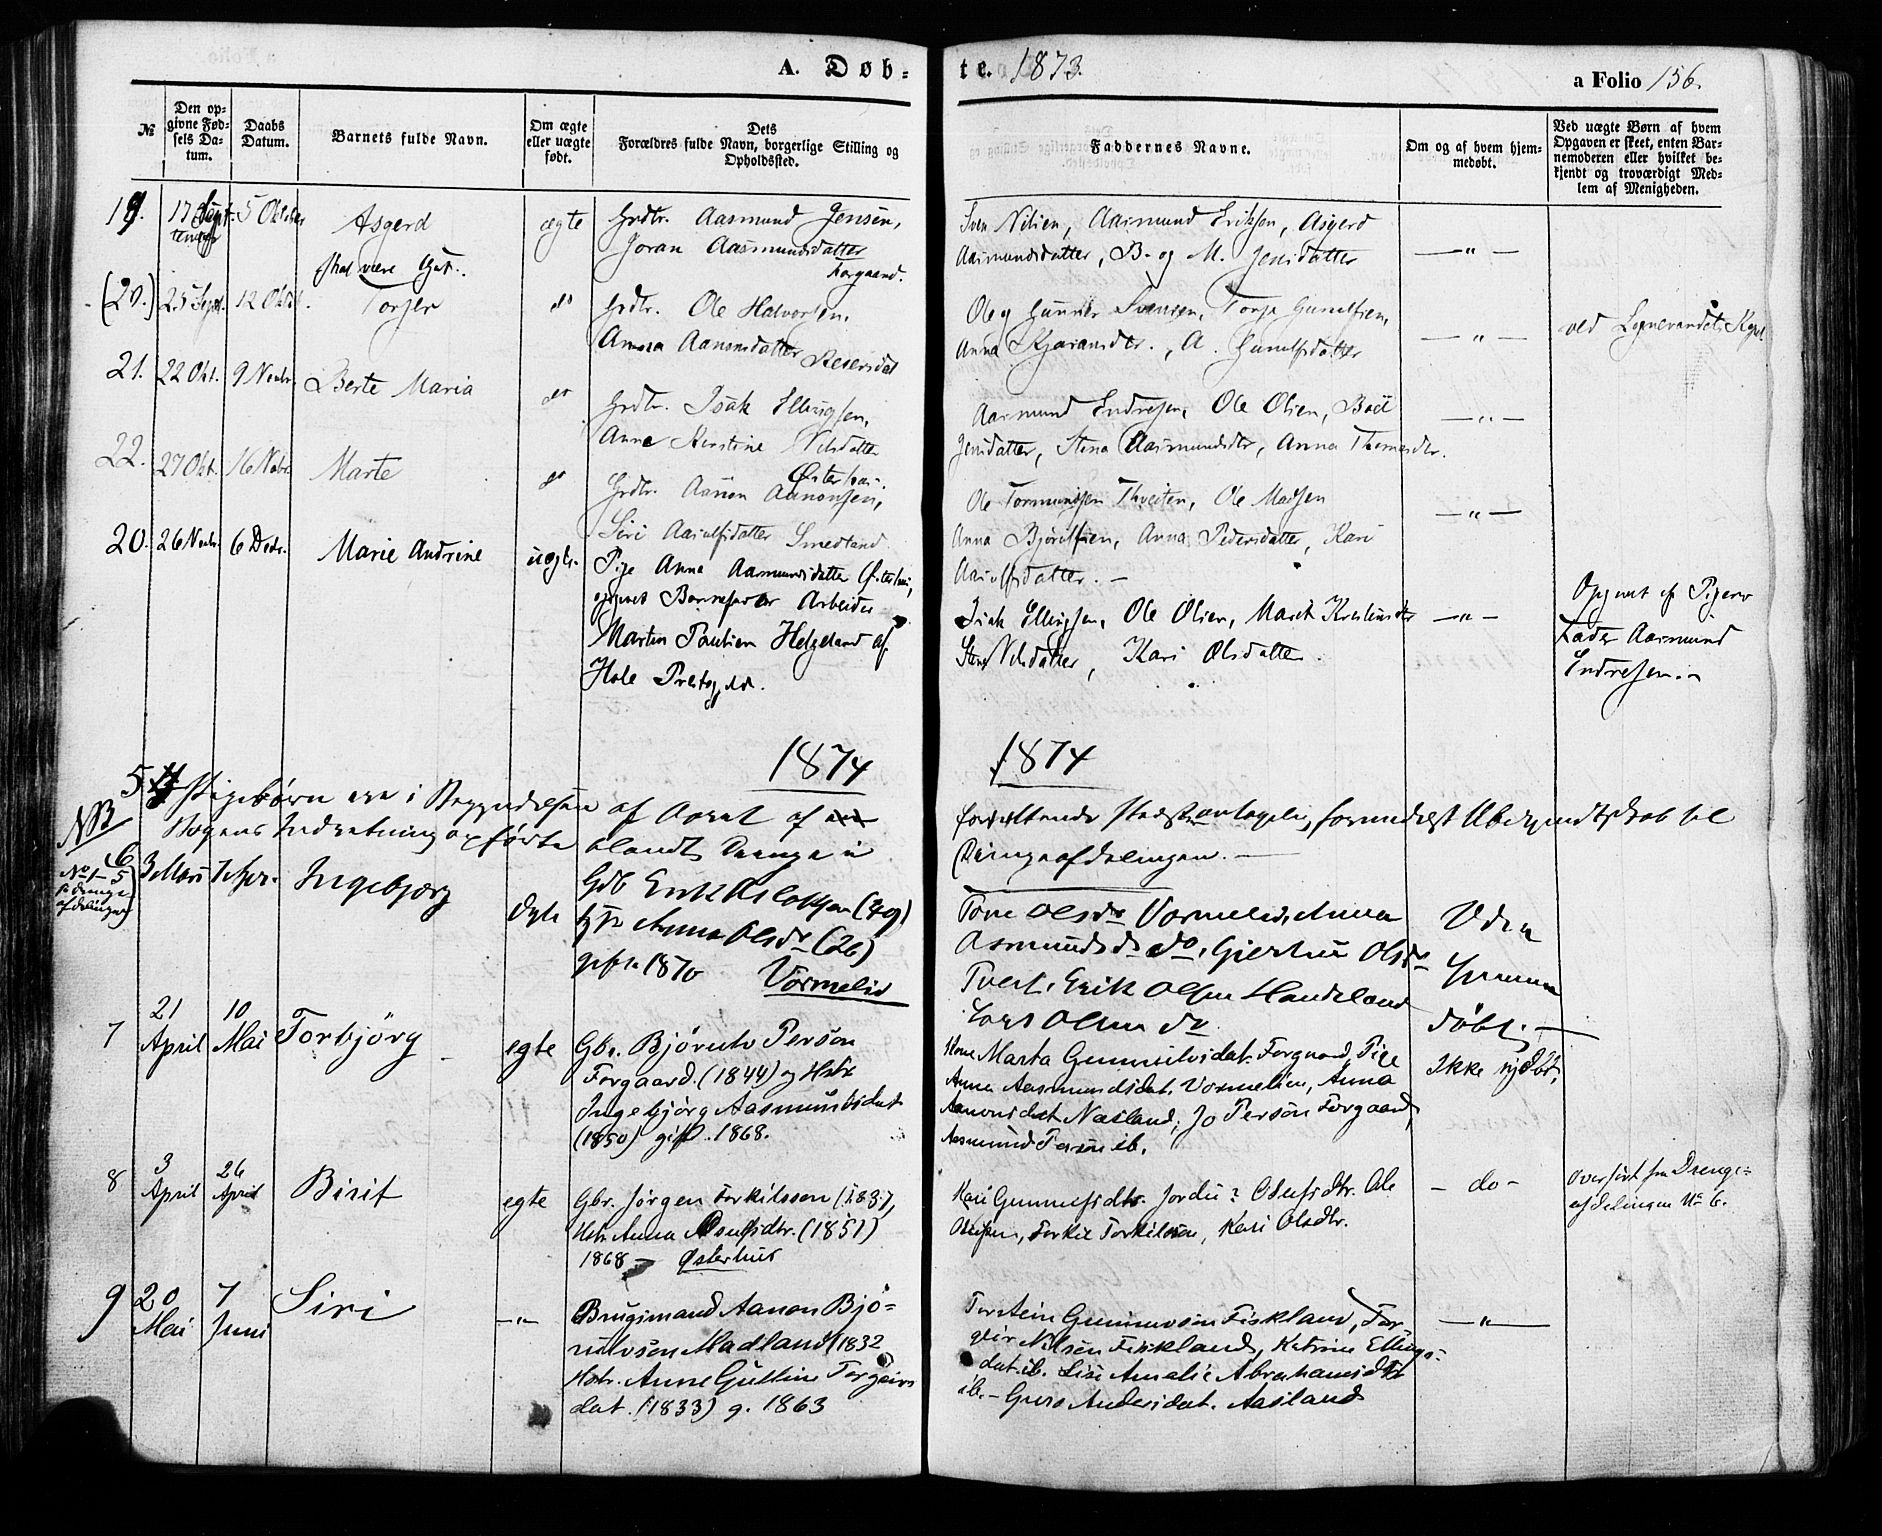 A. Døb-
te. 1873.
a Folio 156.
№
Den op-
givne Fød-
sels Da-
tum.
Daabs
Datum.
Barnets fulde Navn.
Om ægte
eller uægte
født.
Dets
Forældres fulde Navn, borgerlige Stilling og
Opholdssted.
Faddernes Navne.
Om og af hvem hjem-
medøbt.
Ved uægte Børn af hvem
Opgaven er skeet, enten Bar-
nemoderen eller hvilket be-
kjendt og troværdigt Med-
lem af Menigheden.
19. 17 Sept- 5 Oktober Asgerd ægte Grdbr. Aasmund Jensen,
tember
Joran Aasmundsdatter
Forgaard.
Sven Nilsen, Aasmund Eriksen, Asgerd
Aasmundsdatter, B. og M. Jensdatter
— " —
skal være Gut.
(20.) 25 Sept. 12 Oktb. Torjer do Grdbr. Ole Halvorsen,
Anna Aanensdatter
Ole og Gunder Svensen, Torje Gunulfsen,
Anna , A. Gunulfsdatter
— " —
ved Lognevandets Kapel
21. 22 Okt. 9 Novbr. Berte Maria do Grdbr. Isak Ellingsen,
Anne Kirstine Nilsdatter
Østerhus.
Aasmund Endresen, Ole Olsen, Boel
Jensdatter, Stina Aasmundsdtr, Anna Thomasdtr.
— " —
22. 27 Okt. 16 Novbr Marte do Grdbr. Aanon Aanonsen,
Siri Aasulfsdatter Smedland
Ole Tormundsen Thveiten, Ole Madsen
Anna Bjørulfsen, Anna Pedersdatter, Kari
Aasulfsdatter. —
— " —
20. 26 Novbr. 6 Decbr. Marie Andrine uægte. Pige Anna Aasmundsdatter Østerhus,
opgivet Barnefader Arbeider
Martin Paulsen Helgeland af
Hole Prestegjeld.
Isak Ellingsen, Ole Olsen, Marit
Stine Nilsdatter, Kari Olsdatter.
— " —
Opgivet af Pigens
Fader Aasmund
Endresen. —
1874
1874
5 Pigebørn ere i Begyndelsen af Aaret af
NB
Bogens Indretning opførte blandt Drenge i
forestaaende Ubekjendtskab til
Drengeafdelingen. —
No 1–5
i Drenge-
afdelingen
6 3 Marts 7 Apr. Ingebjørg ægte Gdb Erik Aslaksen (29)
Anna Olsdr (26)
gifte 1870 Vormelid
Tone Olsdr Vormelid, Anna
Asmundsdr do, Gjertru Olsdr
Tveit, Erik Olsen Handeland
Lars Olsen do
Uden
døbt. —
7 21 April 10 Mai Torbjörg egte Gbr. Bjørulv Persön
Forgaard. (1844) og Hstr
Ingebjörg Aasmundsdat.
(1850) gift. 1868.
Kone Marta Gunnulvsdat. Forgaard, Pige
Anne Aasmundsdat. Vormelien, Anna
Aanonsdat Næsland, Jo Persön Forgaard,
Aasmund Persön ib.
Ikke hjdbt.
8 3 April 26 April Birit egte Gbr. Jörgen Torkilsson (1837),
Hstr. Anna Osufsdtr. (1851)
1868 — Østerhus
Kari Gunnufsdtr. Jordu? Osufsdtr. Ole
Osufsen, Torkil Torkilsson, Kari Olsdtr.
— do —
Overført fra Drenge-
afdelingen No 6.
9 20 Mai 7 Juni Siri — " — Brugsmand Aanon Bjö-
rulvsøn Madland (1832
Hstr. Anne Gulline Torgeirs
dat. (1833) g. 1863
Torstein Gunnuvsön Fiskland, Tor-
geir Nilsen Fiskland, Katrine Ellings-
dat. ib. Lise Amalie Abrahamsdtr
ib. — Guro Andersdat. Aasland
— " —